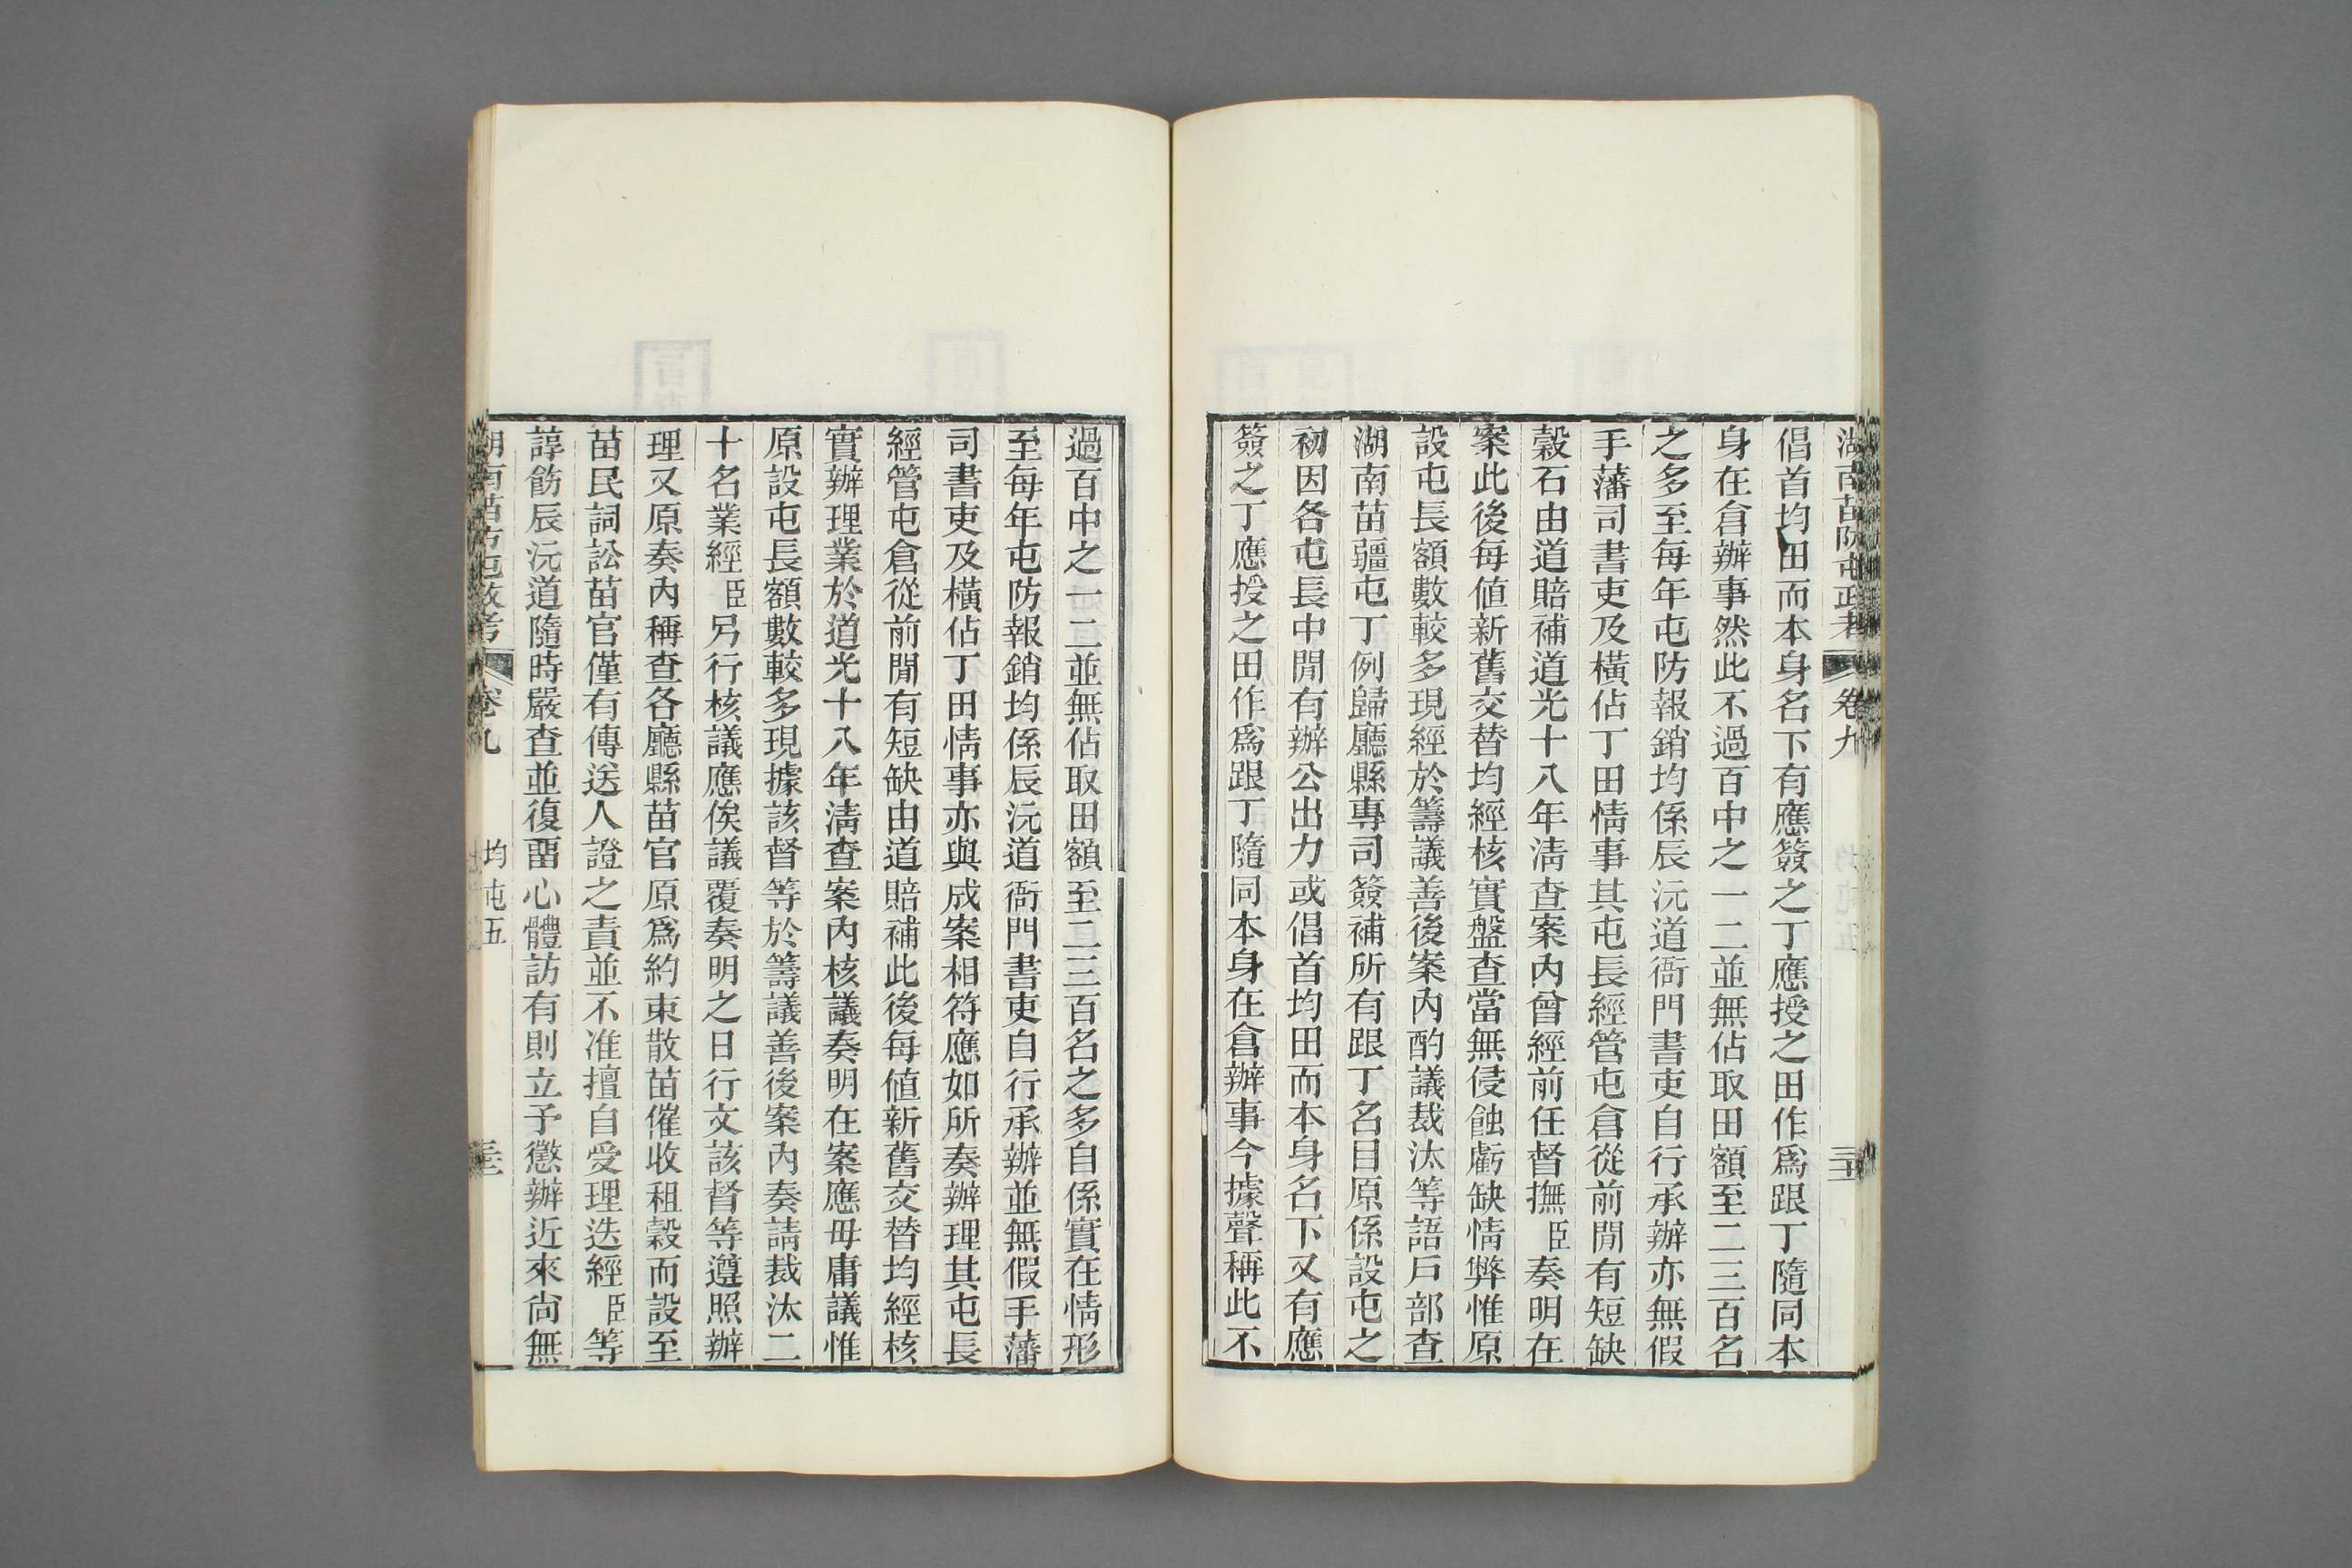 湖南苗防屯政考 卷九
倡首均田而本身名下有應簽之丁應授之田作爲跟丁隨同本
身在倉辦事然此不過百中之一二並無佔取田額至二三百名
之多至每年屯防報銷均係辰沅道衙門書吏自行承辦亦無假
手藩司書吏及橫佔丁田情事其屯長經管屯倉從前閒有短缺
穀石由道賠補道光十八年淸查案內曾經前任督撫臣奏明在
案此後每值新舊交替均經核實盤查當無侵蝕虧缺情弊惟原
設屯長額數較多現經於籌議善後案內酌議裁汰等語戶部查
湖南苗疆屯丁例歸廳縣專司簽補所有跟丁名目原係設屯之
初因各屯長中閒有辦公出力或倡首均田而本身名下又有應
簽之丁應授之田作爲跟丁隨同本身在倉辦事今據聲稱此不
過百中之一二並無佔取田額至二三百名之多自係實在情形
至每年屯防報銷均係辰沅道衙門書吏自行承辦並無假手藩
司書吏及橫佔丁田情事亦與成案相符應如所奏辦理其屯長
經管屯倉從前閒有短缺由道賠補此後每值新舊交替均經核
實辦理業於道光十八年淸查案內核議奏明在案應毋庸議惟
原設屯長額數較多現據該督等於籌議善後案內奏請裁汰二
十名業經臣另行核議應俟議覆奏明之日行文該督等遵照辦
理又原奏內稱查各廳縣苗官原爲約束散苗催收租穀而設至
苗民詞訟苗官僅有傳送人證之責並不准擅自受理迭經臣等
諄飭辰沅道隨時嚴查並復畱心體訪有則立予懲辦近來尙無
湖南苗防屯政考 卷九 均屯五